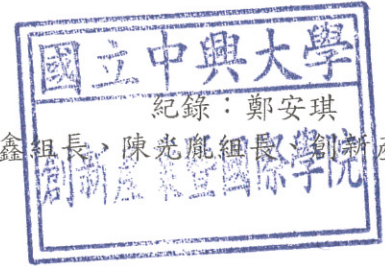 國立中興大學
紀錄：鄭安琪
鑫組長、陳光胤組長、創新產
創新產業暨國際學院